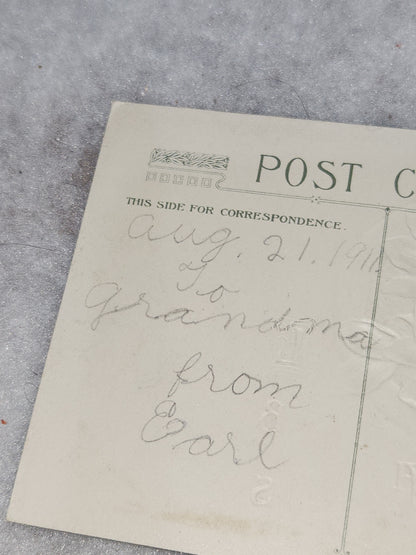 POST C
THIS SIDE FOR CORRESPONDENCE.
Aug. 21. 1911
To
Grandma
from
Earl